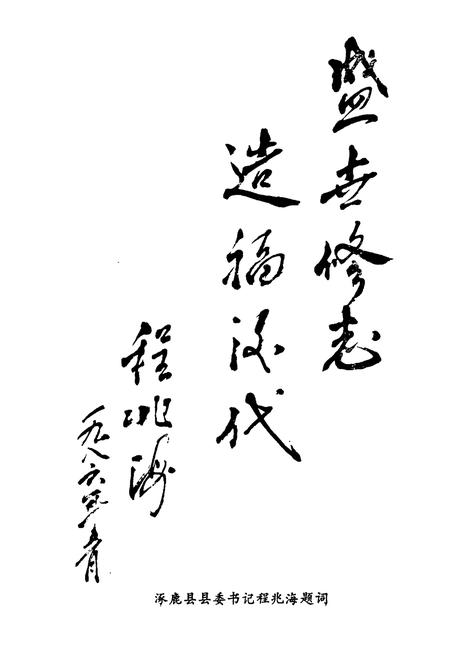 盛世修志
造福后代
程兆海
一九八六年一月
涿鹿县县委书记程兆海题词